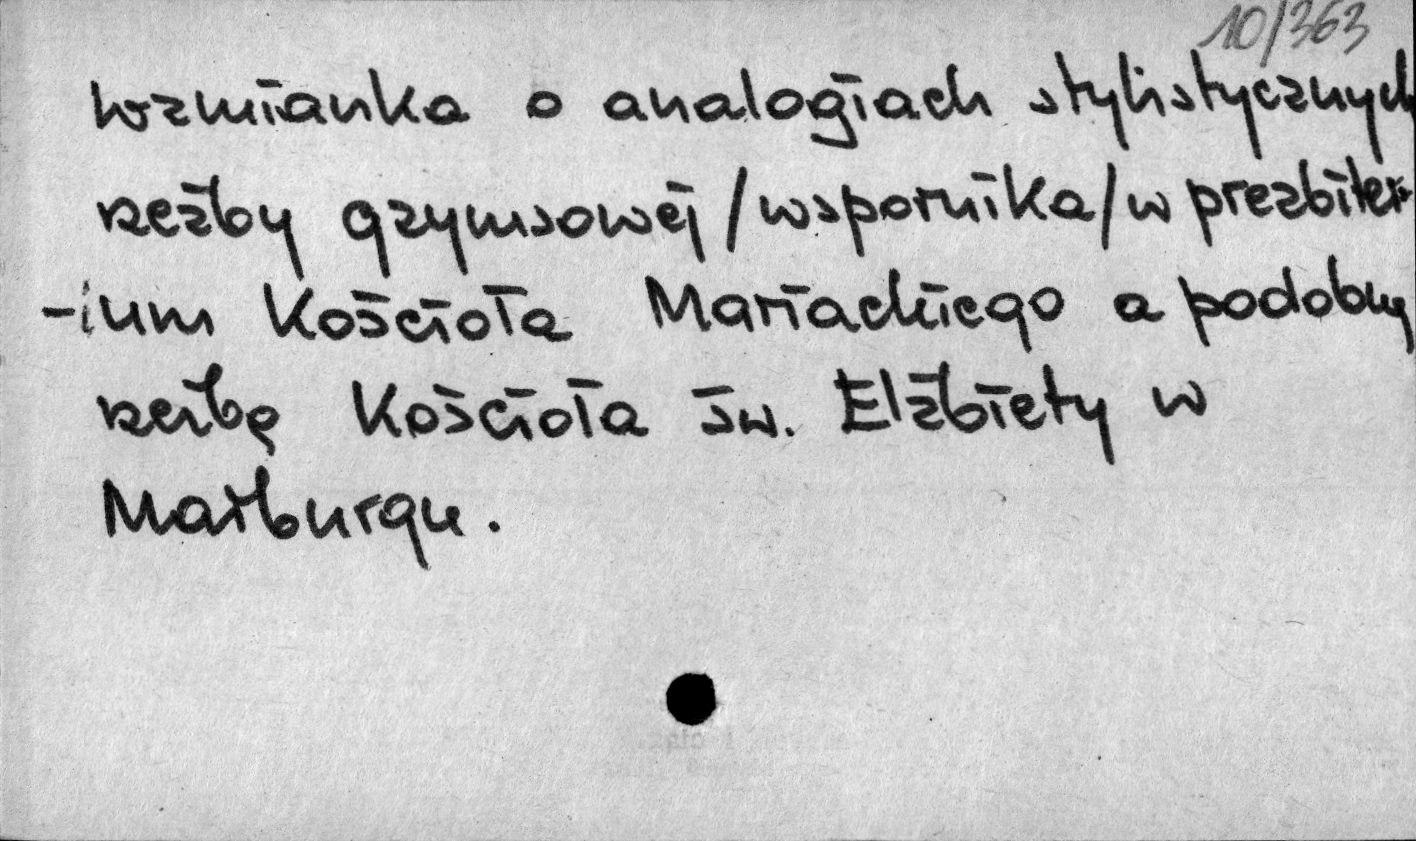 10/363
wzmianka o analogiach stylistycznych
rzeźby gzymsowej /wspornika/ w prezbiter-
-ium Kościoła Mariackiego a podobną
rzeźbą Kościoła św. Elżbiety w
Marburgu.